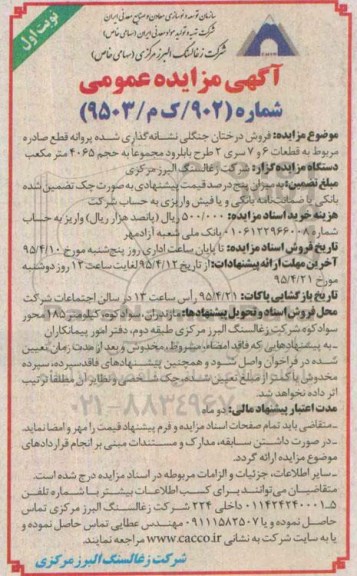 نوبت اول
سازمان توسعه و نوسازی معادن و صنایع معدنی ایران
شرکت تهیه و تولید مواد معدنی ایران (سهامی خاص)
شرکت زغالسنگ البرز مرکزی (سهامی خاص)
آگهی مزایده عمومی
شماره (۹۰۲/ک م/۹۵۰۳)
موضوع مزایده: فروش درختان جنگلی نشانه گذاری شده پروانه قطع صادره
مربوط به قطعات ۶ و ۷ سری ۲ طرح بابلرود مجموعاً به حجم ۴۰۶۵ متر مکعب
دستگاه مزایده گزار: شرکت زغالسنگ البرز مرکزی
مبلغ تضمین: به میزان پنج درصد قیمت پیشنهادی به صورت چک تضمین شده
بانکی یا ضمانت نامه بانکی و یا فیش واریزی به حساب شرکت
هزینه خرید اسناد مزایده: ۵۰۰/۰۰۰ ریال (پانصد هزار ریال) واریز به حساب
شماره ۰۱۰۶۱۲۲۹۶۶۰۰۸ بانک ملی شعبه آزادمهر
تاریخ فروش اسناد مزایده: تا پایان ساعت اداری روز پنجشنبه مورخ ۹۵/۴/۱۰
آخرین مهلت ارائه پیشنهادات: از تاریخ ۹۵/۴/۱۲ لغایت ساعت ۱۳ روز دوشنبه
مورخ ۹۵/۴/۲۱
تاریخ بازگشایی پاکات: ۹۵/۴/۲۱ رأس ساعت ۱۳ در سالن اجتماعات شرکت
محل فروش اسناد و تحویل پیشنهادها: مازندران، سوادکوه، کیلومتر ۱۸۵ محور
سوادکوه، شرکت زغالسنگ البرز مرکزی طبقه دوم، دفتر امور پیمانکاران
ـ به پیشنهادهایی که فاقد امضاء، مشروط، مخدوش و بعد از مدت زمان تعیین
شده در فراخوان واصل شود و همچنین پیشنهادهای فاقد سپرده، سپرده
مخدوش یا کمتر از مبلغ تعیین شده، چک شخصی و نظایر آن مطلقاً ترتیب
اثر داده نخواهد شد.
مدت اعتبار پیشنهاد مالی: دو ماه
ـ متقاضی باید تمام صفحات اسناد مزایده و فرم پیشنهاد قیمت را مهر و امضا نماید.
ـ در صورت داشتن سابقه، مدارک و مستندات مبنی بر انجام قراردادهای
موضوع مزایده ارائه گردد.
ـ سایر اطلاعات، جزئیات و الزامات مربوطه در اسناد مزایده درج شده است.
متقاضیان می‌توانند برای کسب اطلاعات بیشتر با شماره تلفن
۵ـ۰۱۱۴۲۴۲۴۰۰۰۱ داخلی ۲۲۴ شرکت زغالسنگ البرز مرکزی تماس
حاصل نموده و یا ۰۹۱۱۱۵۸۲۵۰۷ مهندس عطایی تماس حاصل نموده و
یا به سایت شرکت به نشانی www.cacco.ir مراجعه نمایند.
شرکت زغالسنگ البرز مرکزی